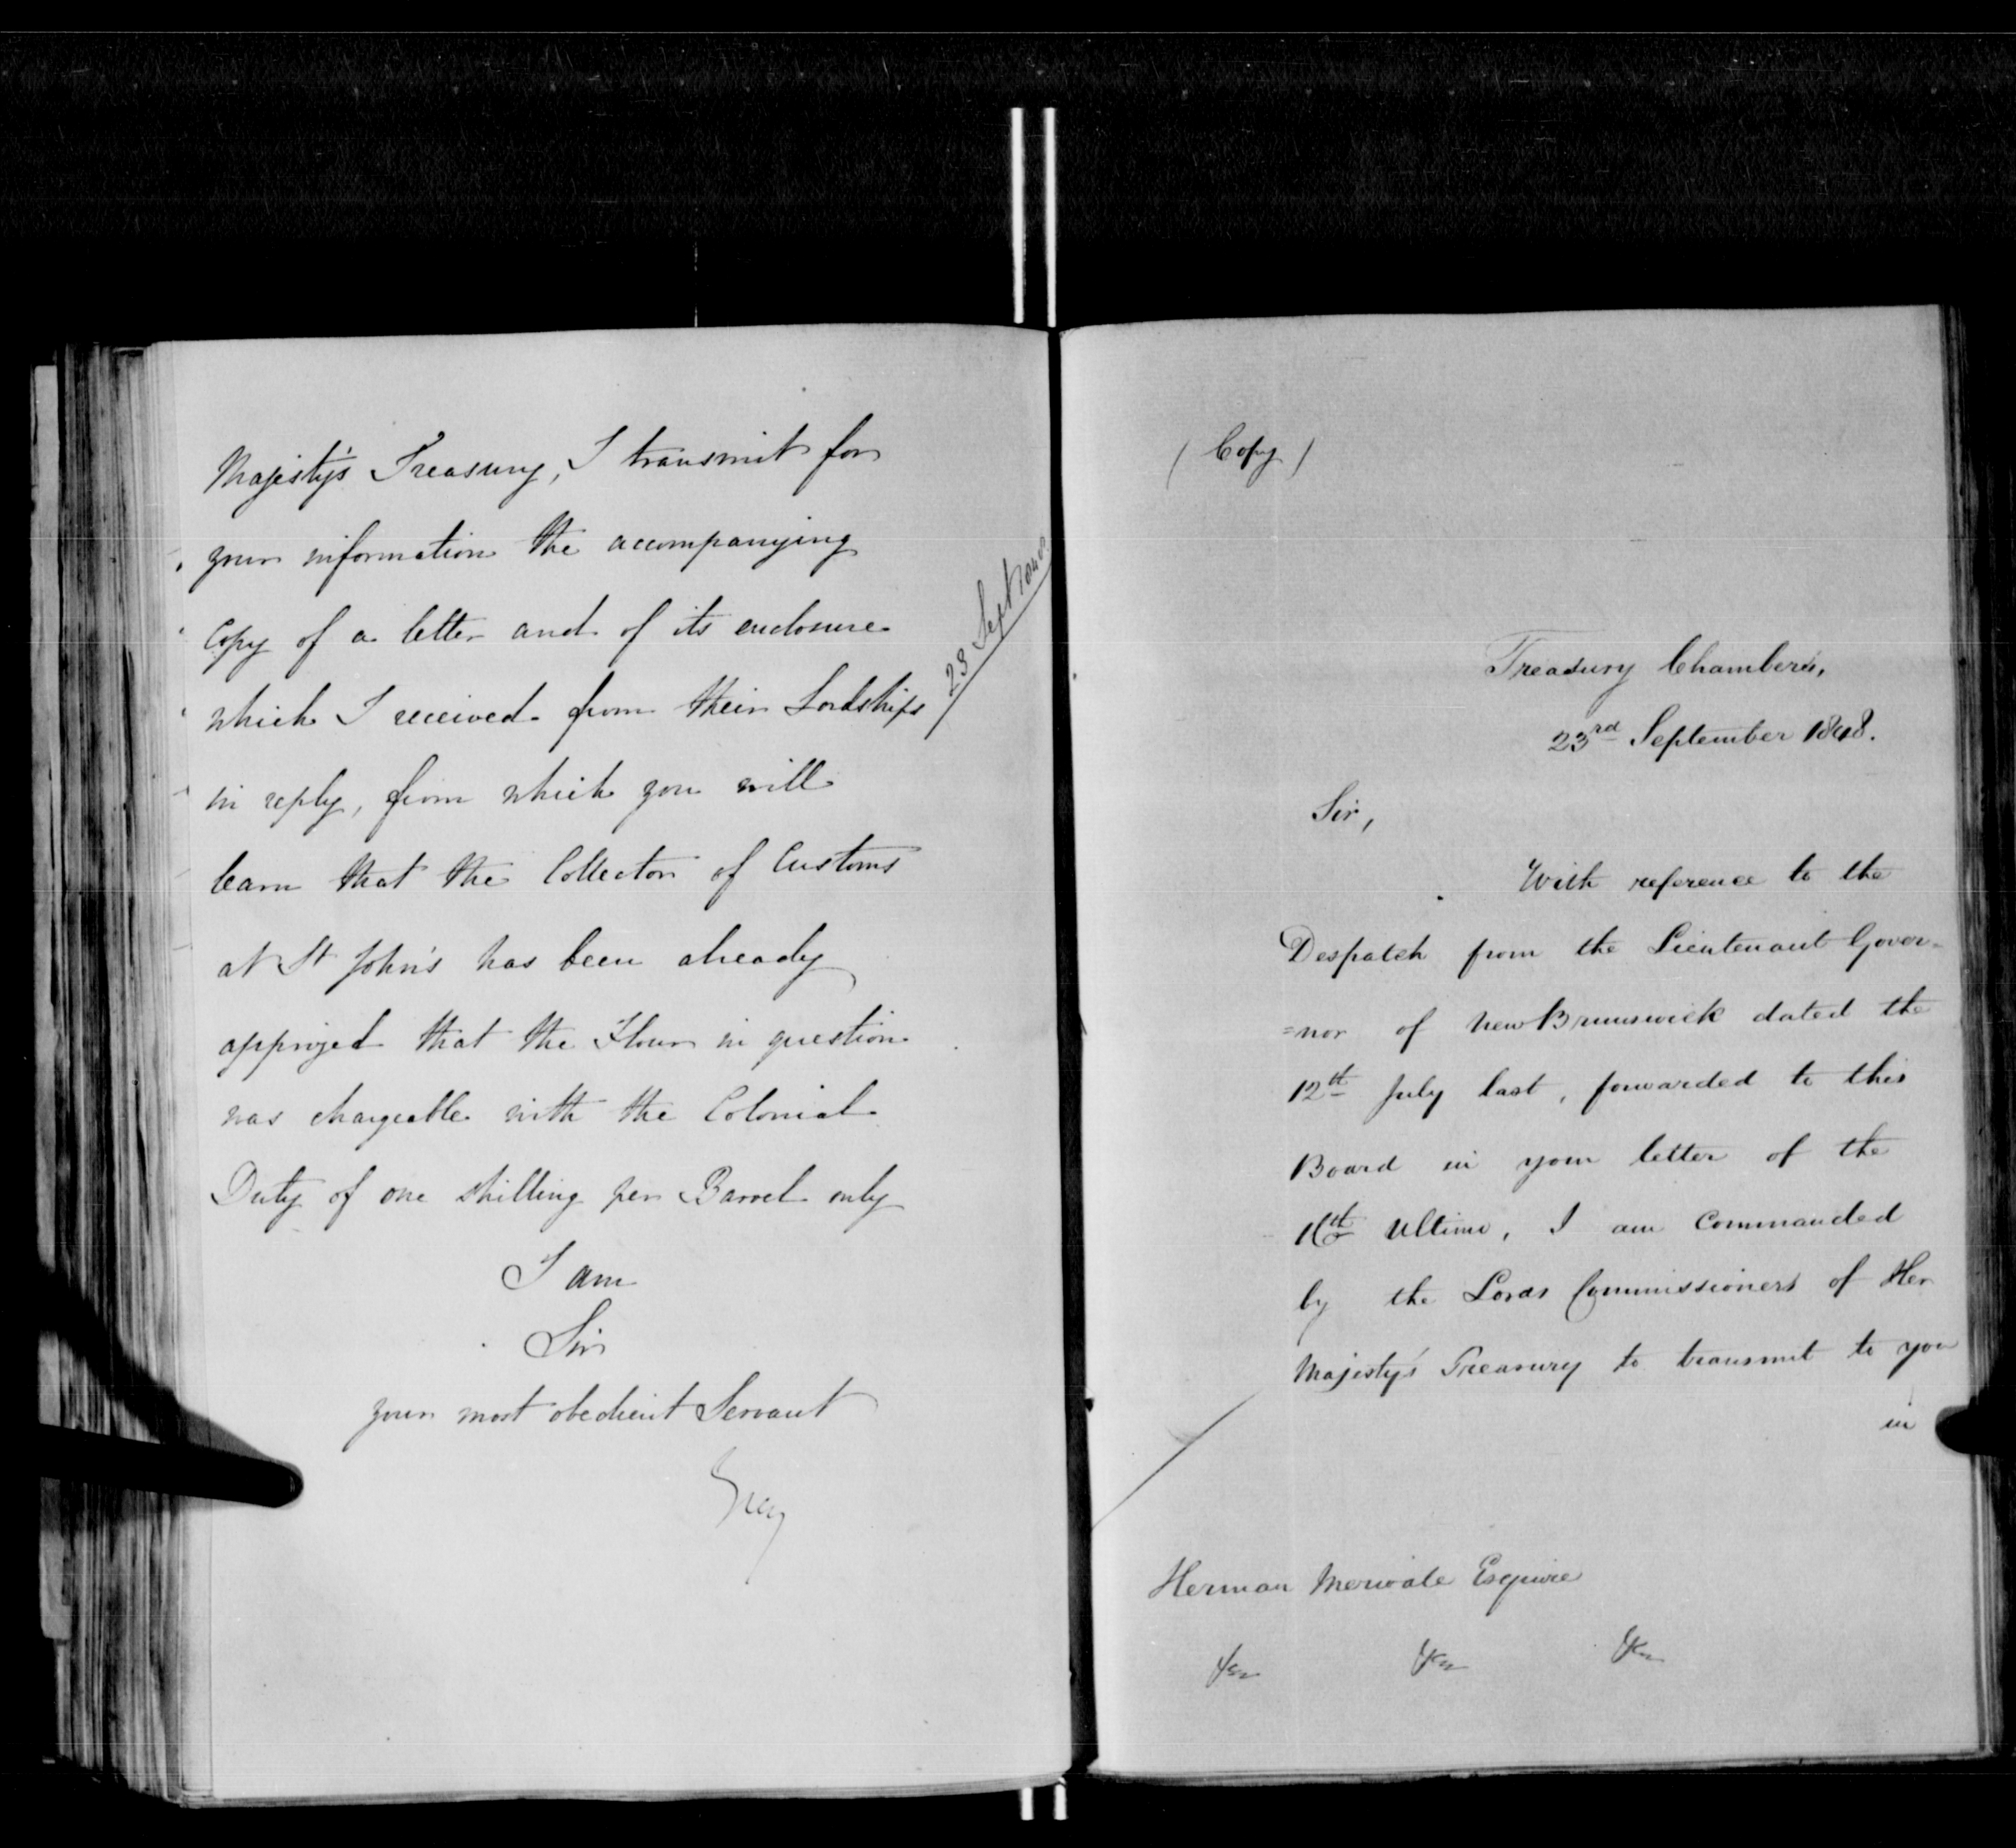 Majesty's Treasury, I transmit for
your information the accompanying
Copy of a letter and of its enclosure
which I received from their Lordships
23 Sept 1848
in reply, from which you will
learn that the Collector of Customs
at St John's has been already
apprized that the Flour in question
was chargeable with the Colonial
Duty of one shilling per Barrel only
I am
Sir
your most obedient Servant
Grey
( Copy )
Treasury Chambers,
23rd September 1848.
Sir,
With reference to the
Despatch from the Lieutenant Gover=
=nor of New Brunswick dated the
12th July last, forwarded to this
Board in your letter of the
16th Ultimo, I am Commanded
by the Lords Commissioners of Her
Majesty's Treasury to transmit to you
in
Herman Merivale Esquire
&c &c &c